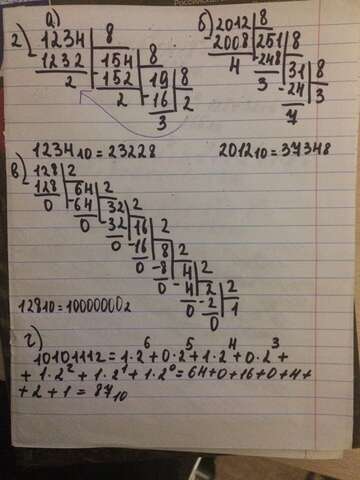 а)
2) 1234 | 8
- 1232 | 154 | 8
2 - 152 | 19 | 8
2 - 16 | 2
3
1234₁₀ = 2322₈
б) 2012 | 8
- 2008 | 251 | 8
4 - 248 | 31 | 8
3 - 24 | 3
7
2012₁₀ = 3734₈
в) 128 | 2
- 128 | 64 | 2
0 - 64 | 32 | 2
0 - 32 | 16 | 2
0 - 16 | 8 | 2
0 - 8 | 4 | 2
0 - 4 | 2 | 2
0 - 2 | 1
0
128₁₀ = 10000000₂
г)
1010111₂ = 1·2⁶ + 0·2⁵ + 1·2⁴ + 0·2³ +
+ 1·2² + 1·2¹ + 1·2⁰ = 64+0+16+0+4+
+ 2 + 1 = 87₁₀